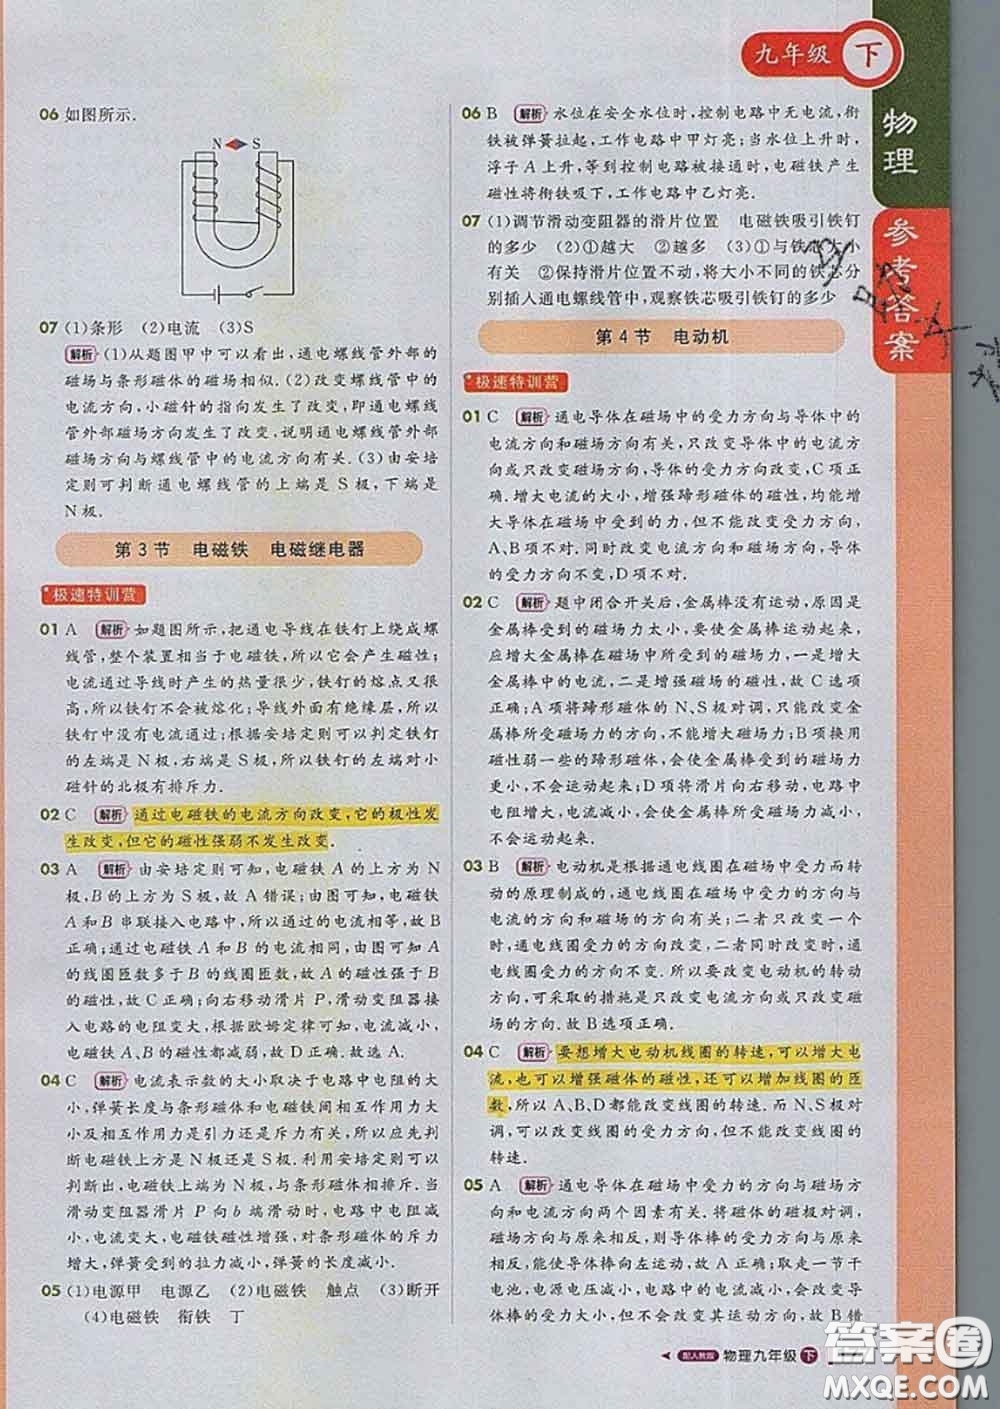 九年级 下
物理
参考答案
06 如图所示.
N S
07 (1)条形 (2)电流 (3)S
解析 (1)从题图甲中可以看出,通电螺线管外部的
磁场与条形磁体的磁场相似.(2)改变螺线管中的
电流方向,小磁针的指向发生了改变,即通电螺线
管外部磁场方向发生了改变,说明通电螺线管外部
磁场方向与螺线管中的电流方向有关.(3)由安培
定则可判断通电螺线管的上端是 S 极,下端是
N 极.
第 3 节 电磁铁 电磁继电器
极速特训营
01 A 解析 如题图所示,把通电导线在铁钉上绕成螺
线管,整个装置相当于电磁铁,所以它会产生磁性;
电流通过导线时产生的热量很少,铁钉的熔点又很
高,所以铁钉不会被熔化;导线外面有绝缘层,所以
铁钉中没有电流通过;根据安培定则可以判定铁钉
的左端是 N 极,右端是 S 极,所以铁钉的左端对小
磁针的北极有排斥力.
02 C 解析 通过电磁铁的电流方向改变,它的极性发
生改变,但它的磁性强弱不发生改变.
03 A 解析 由安培定则可知,电磁铁 A 的上方为 N
极,B 的上方为 S 极,故 A 错误;由图可知,电磁铁
A 和 B 串联接入电路中,所以通过的电流相等,故 B
正确;通过电磁铁 A 和 B 的电流相同,由图可知 A
的线圈匝数多于 B 的线圈匝数,所以 A 的磁性强于 B
的磁性,故 C 正确;向右移动滑片 P,滑动变阻器接
入电路的电阻变大,根据欧姆定律可知,电流减小,
电磁铁 A、B 的磁性都减弱,故 D 正确.故选 A.
04 C 解析 电流表示数的大小取决于电路中电阻的大
小,弹簧长度与条形磁体和电磁铁间相互作用力大
小及相互作用力是引力还是斥力有关,所以应先判
断电磁铁上方是 N 极还是 S 极.利用安培定则可以
判断出,电磁铁上端为 N 极,与条形磁体相排斥.当
滑动变阻器滑片 P 向 b 端滑动时,电路中电阻减
小,电流变大,电磁铁磁性增强,对条形磁体的斥力
增大,弹簧受到的拉力减小,弹簧的长度减小.
05 (1)电源甲 电源乙 (2)电磁铁 触点 (3)断开
(4)电磁铁 衔铁 丁
06 B 解析 水位在安全水位时,控制电路中无电流,衔
铁被弹簧拉起,工作电路中甲灯亮;当水位上升时,
浮子 A 上升,等到控制电路接通时,电磁铁产生
磁性将衔铁吸下,工作电路中乙灯亮.
07 (1)调节滑动变阻器的滑片位置 电磁铁吸引铁钉
的多少 (2)①越大 ②越多 (3)①与铁芯大小
有关 ②保持滑片位置不动,将大小不同的铁芯分
别插入通电螺线管中,观察铁芯吸引铁钉的多少
第 4 节 电动机
极速特训营
01 C 解析 通电导体在磁场中的受力方向与导体中的
电流方向和磁场方向有关,只改变导体中的电流方
向或只改变磁场方向,导体的受力方向改变,C 项正
确.增大电流的大小,增强蹄形磁体的磁性,均能增
大导体在磁场中受到的力,但不能改变受力方向,
A、B 项不对.同时改变电流方向和磁场方向,导体
的受力方向不变,D 项不对.
02 C 解析 题中闭合开关后,金属棒没有运动,原因是
金属棒受到的磁场力太小,要使金属棒运动起来,
应增大金属棒在磁场中所受到的磁场力,一是增大
金属棒的电流,二是增强磁场的磁性,故 C 选项正
确;A 项将蹄形磁体的 N、S 极对调,只改变金
属棒所受磁场力的方向,不能增大磁场力;B 项换用
磁性弱一些的蹄形磁体,会使金属棒受到的磁场力
减小,不会运动起来;D 项将滑片向右移动,电路中
电阻增大,电流减小,会使金属棒受到的磁场力减小,
不会运动起来.
03 B 解析 电动机是根据通电线圈在磁场中受力而转
动的原理制成的,通电线圈在磁场中受力的方向与
电流的方向和磁场的方向有关;二者只改变一个
时,通电线圈受力的方向改变,二者同时改变时,通
电线圈受力的方向不变.所以要改变电动机的转动
方向,可采取的措施是只改变电流方向或只改变磁
场的方向.故 B 选项正确.
04 C 解析 要想增大电动机线圈的转速,可以增大电
流,也可以增强磁体的磁性,还可以增加线圈的匝
数,所以 A、B、D 都能改变线圈的转速.而 N、S 极对
调,可以改变线圈的受力方向,但不能改变线圈的
转速.
05 A 解析 通电导体在磁场中受力的方向与磁场方
向和电流方向两个因素有关.将磁体的磁极对调,
磁场方向与原来相反,则导体棒受力的方向与原来
相反,导体棒将向右运动,故 A 正确;取走一节干
电池,电源电压变小,电路中电流变小,会使导
体棒的受力大小变小,不会改变其运动方向,故 B 错
配人教版 物理九年级 下
答案圈
MXQE.COM